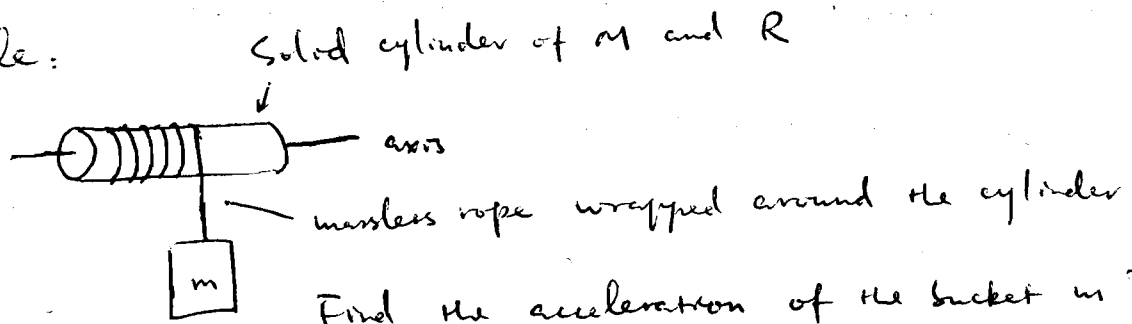 le:
Solid cylinder of M and R
axis
massless rope wrapped around the cylinder
m
Find the acceleration of the bucket m?